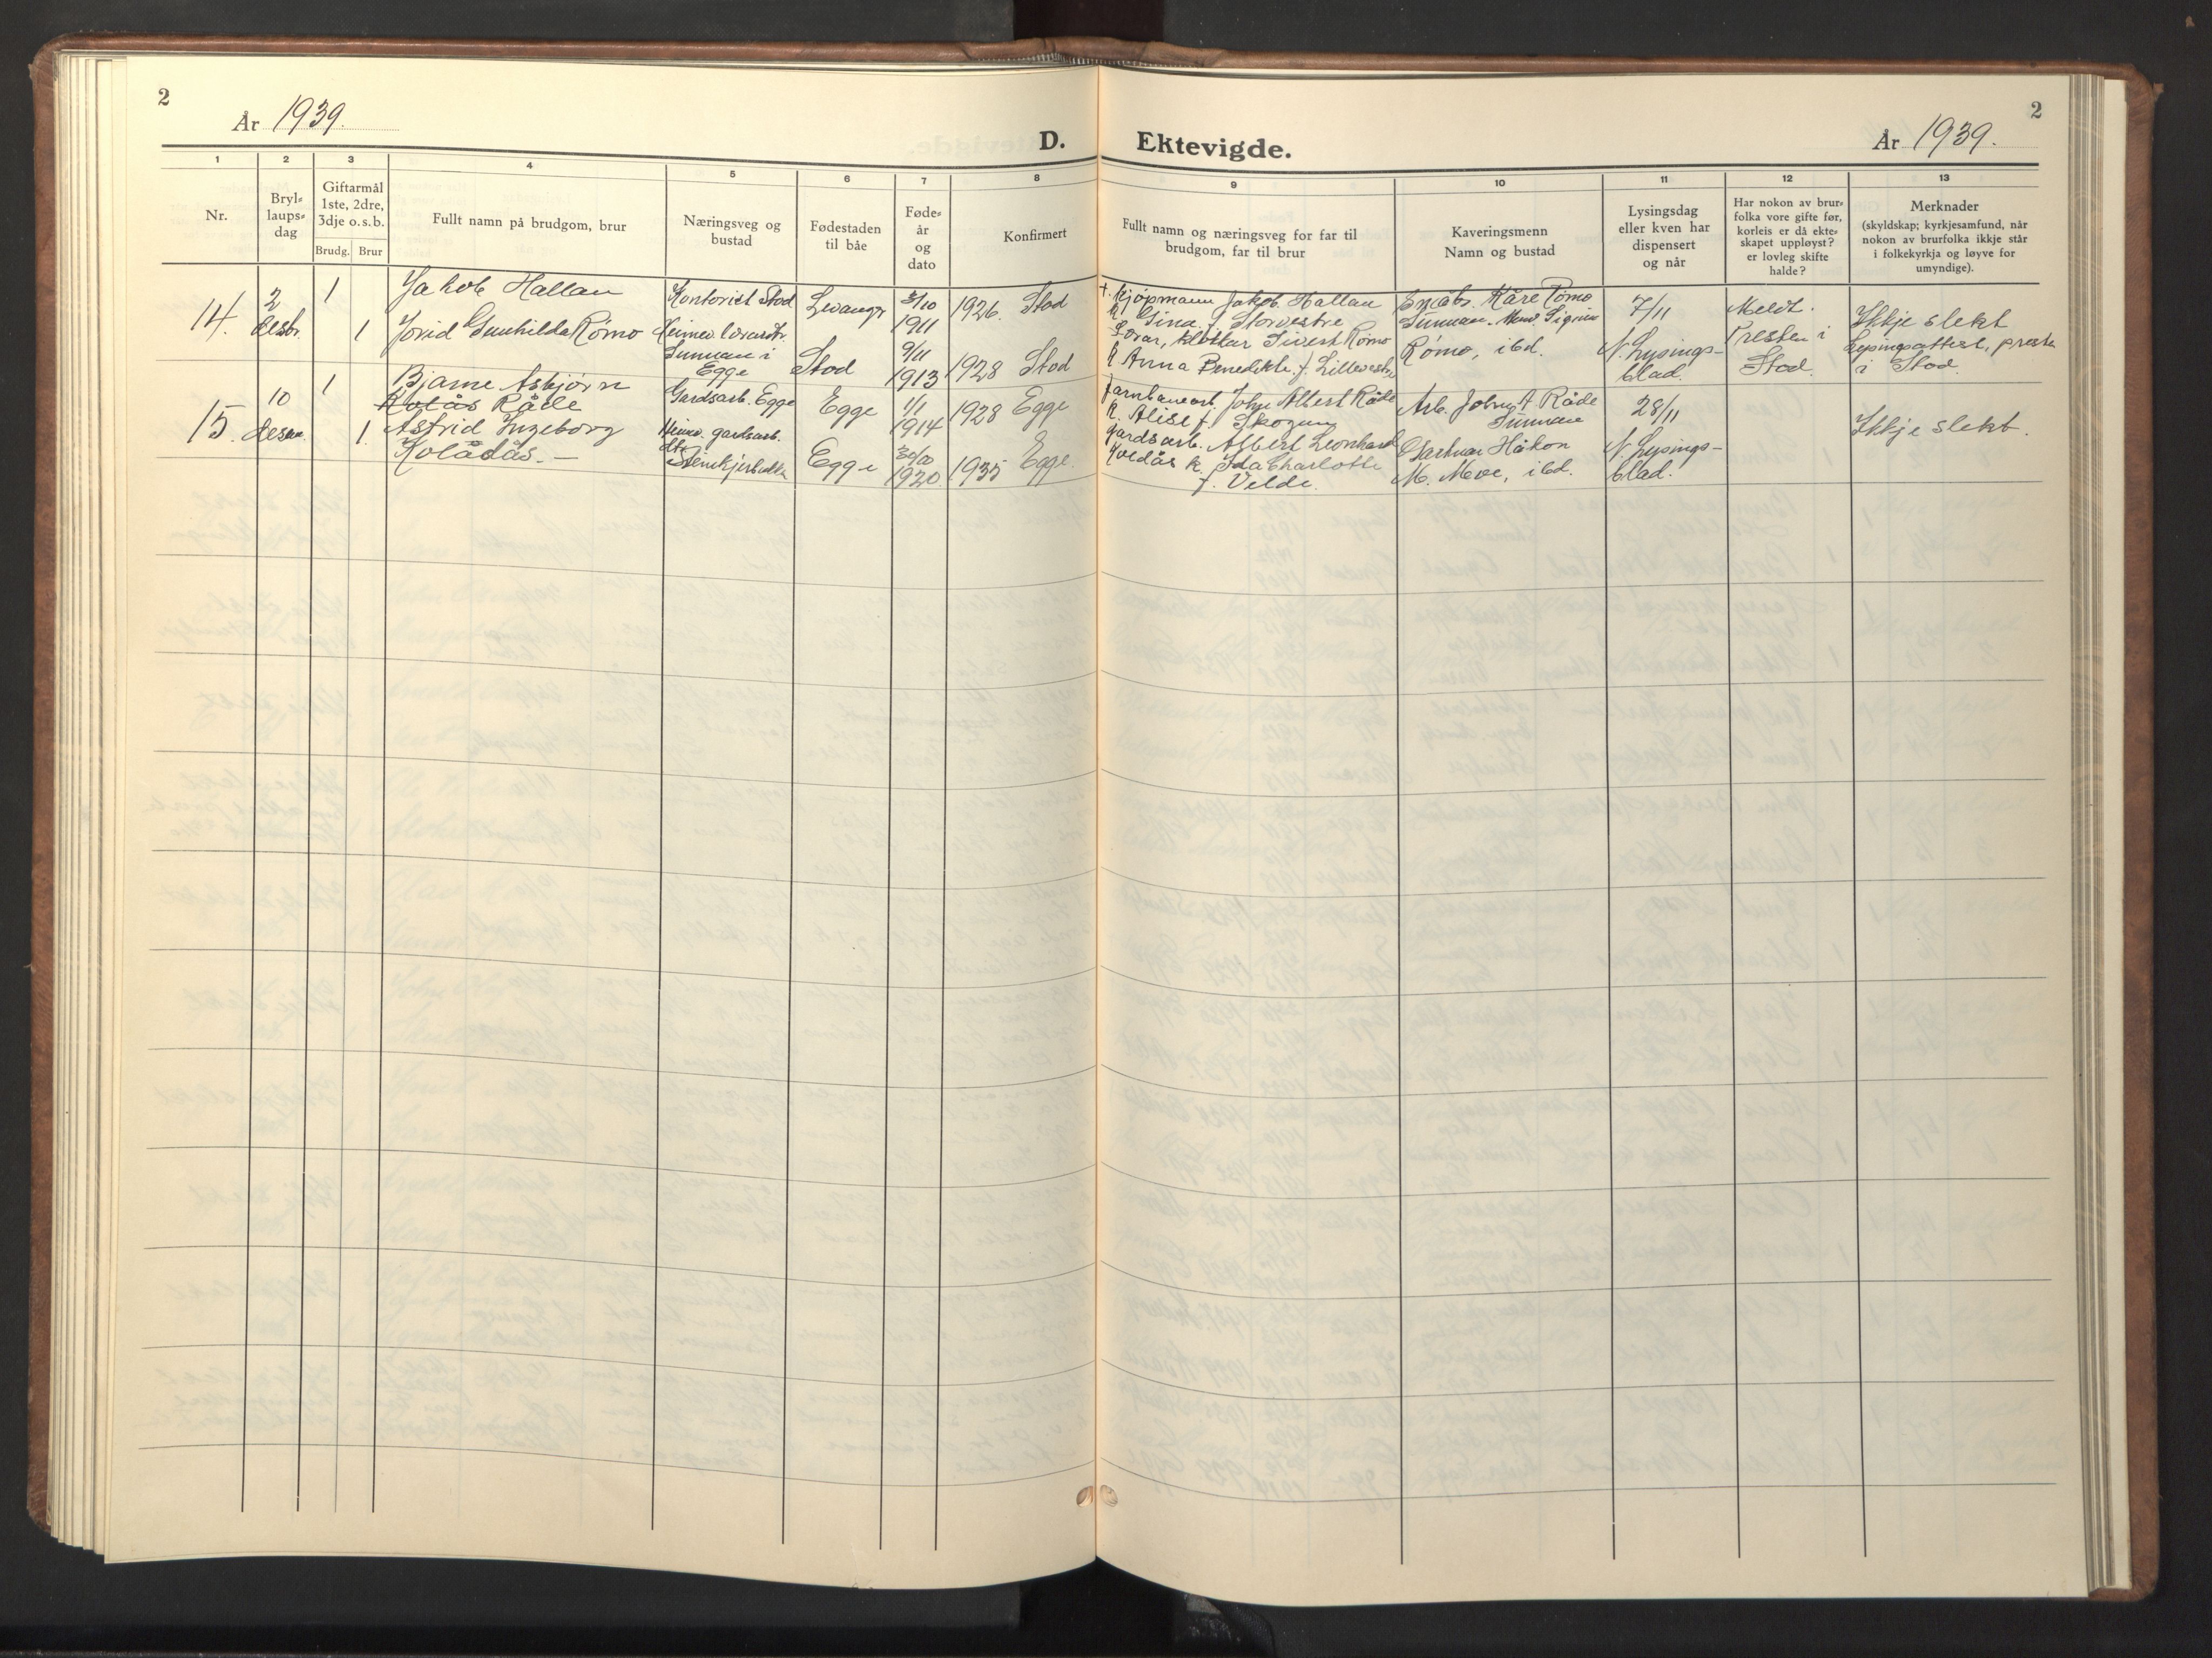 2
År 1939.
D. Ektevigde.
År 1939.
2
1
2
3
4
5
6
7
8
9
10
11
12
13
Nr.
Bryl-
laups-
dag
Giftarmål
1ste, 2dre,
3dje o.s.b.
Brudg. Brur
Fullt namn på brudgom, brur
Næringsveg og
bustad
Fødestaden
til båe
Føde-
år
og
dato
Konfirmert
Fullt namn og næringsveg for far til
brudgom, far til brur
Kaveringsmenn
Namn og bustad
Lysingsdag
eller kven har
dispensert
og når
Har nokon av brur-
folka vore gifte før,
korleis er då ekte-
skapet uppløyst?
er lovleg skifte
halde?
Merknader
(skyldskap; kyrkjesamfund, når
nokon av brurfolka ikkje står
i folkekyrkja og løyve for
umyndige).
14.
2
desbr.
1
Jakob Hallan
Kontorist Stod
Levanger
3/10
1911
1926. Stod
1
Jorid Gunhilda Rømo
Heimev.
Sunnan i
Egge
Stod
9/11
1913
1928 Stod
+ Kjøpmann Jakob Hallan
k. Gina f. Storvestre
Lærar, klokkar Sivert Rømo
k Anna Benedikte f. Lillevestre
Småbr. Kåre Rømo
Sunnan. Signar
Rømo, ibd.
7/11
N. Lysings-
blad.
Meldt.
Presten i
Stod.
Ikkje slekt
Lysingsattest, presten
i Stod.
15.
10
desem.
1
Bjarne Asbjørn
Råde
Gardsarb. Egge
Egge
1/1
1914
1928 Egge
1.
Astrid Ingeborg
Kolådås.
Heimev. gardsarb.
dtr.
Steinkjerbukta
Egge
30/10
1920
1935 Egge.
Jarnbanearb. John Albert Råde
k. Alise f. Skogum
Gardsarb. Albert Leonhard
k. Ida Charlotte
f. Velde.
Arb. Johny A Råde
Sunnan
Gartnar Håkon
M. Moe, ibd.
28/11
N. Lysings-
blad.
Ikkje slekt.